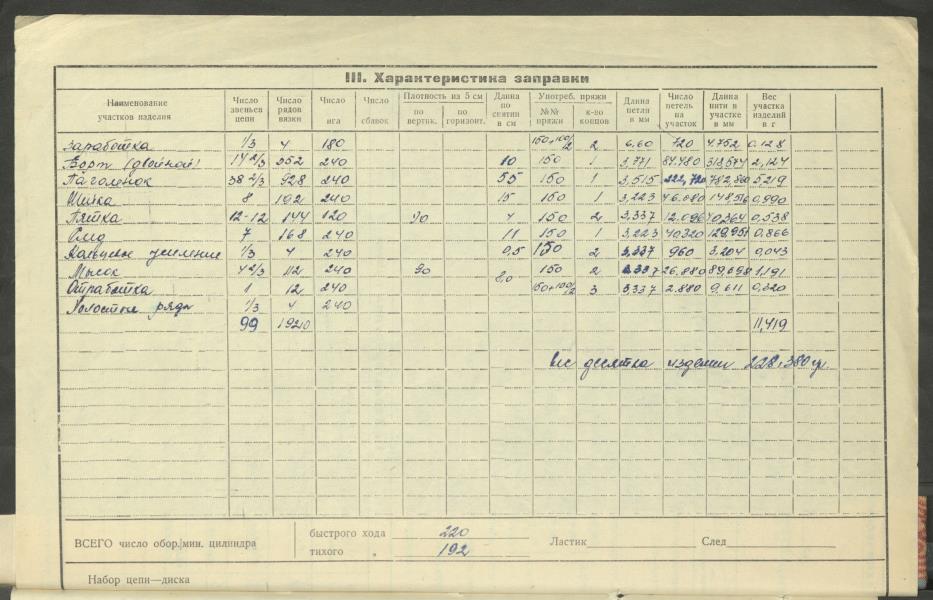 III. Характеристика заправки
Наименование участков изделия | Число звеньев цепи | Число рядов вязки | Число ига | Число сбавок | Плотность из 5 см по вертик. | по горизонт. | Длина по снятии в см | Употреб. пряжи №№ пряжи | к-во концов | Длина петли в мм | Число петель на участок | Длина нити в участке в мм | Вес участка изделия в г
заработка 1/3 4 180 150+100/2 2 6,60 720 4.752 0,128
Борт (двойной) 14 2/3 352 240 10 150 1 3,771 84.480 318,574 2,124
Паголенок 38 2/3 928 240 55 150 1 3,515 222,720 782,860 5,219
Щитка 8 192 240 15 150 1 3,223 46.080 148,516 0,990
Пятка 12-12 144 120 90 4 150 2 3,337 12.096 40,364 0,538
След 7 168 240 11 150 1 3,223 40320 129,951 0,866
Кольцевое усиление 1/3 4 240 0,5 150 2 3,337 960 3,204 0,043
Мысок 4 2/3 112 240 90 150 2 3,337 26,880 89,698 1,191
Отработка 1 12 240 150+100/2 3 3337 2.880 9,611 0,320
Холостые ряды 1/3 4 240
99 1920 11,419
вес десятка изделий 228,380 гр.
ВСЕГО число обор./мин. цилиндра быстрого хода 220
тихого „ 192 Ластик След
Набор цепи—диска